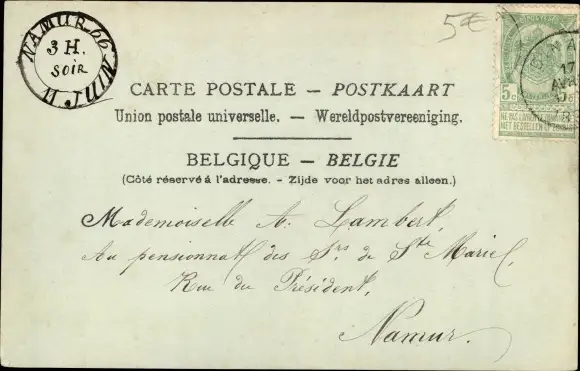 5€
NAMUR 99
3 H.
SOIR
11 JUIN
17
AVR
5c
NE PAS LIVRER LE DIMANCHE
NIET BESTELLEN OP ZONDAG
CARTE POSTALE – POSTKAART
Union postale universelle. – Wereldpostvereeniging.
BELGIQUE – BELGIE
(Côté réservé á l'adresse. - Zijde voor het adres alleen.)
Mademoiselle A. Lambert,
Au pensionnat des Srs de Ste Marie,
Rue du Président,
Namur.